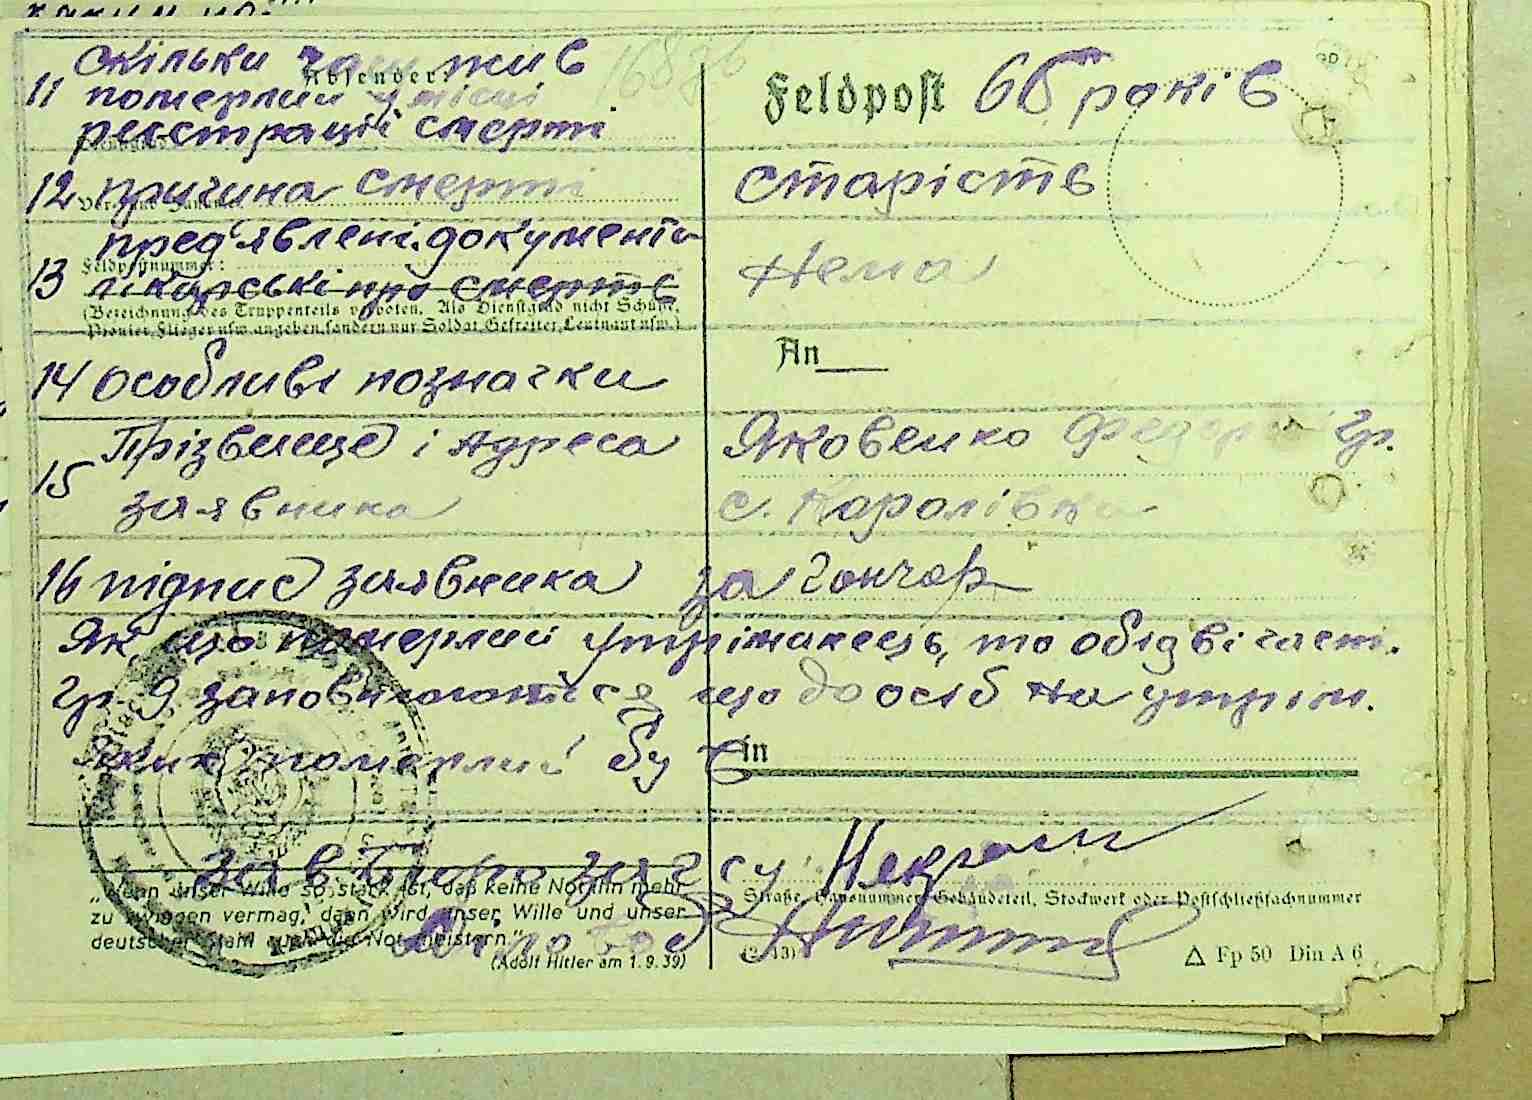 скільки час жив
11 померлий у місці
реєстрації смерти
Absender:
Feldpost 66 років
12 причина смерті старість
пред'явлені документи
13 лікарські про смерть Нема
Feldpostnummer:
(Bezeichnung des Truppenteils verboten. Als Dienstgrad nicht Schütze,
Pionier, Flieger usw. angeben, sondern nur Soldat, Gefreiter, Leutnant usw.)
An
14 особливі позначки
Прізвище і Адреса Яковенко Федор гр.
15 заявника с. Каролівка
16 підпис заявника за Гончар
Як що померлий утріманець, то обідві част.
гр. 9 заповнюються що до осіб на утрім.
яких померлий був
in
зав. Бюро загсу
"Wenn unser Wille so stark ist, daß keine Not ihn mehr
zu zwingen vermag, dann wird unser Wille und unser
deutscher Stahl auch die Not meistern."
(Adolf Hitler am 1.9.39)
Straße, Hausnummer, Gebäudeteil, Stockwerk oder Postschließfachnummer
Fp 50 Din A 6